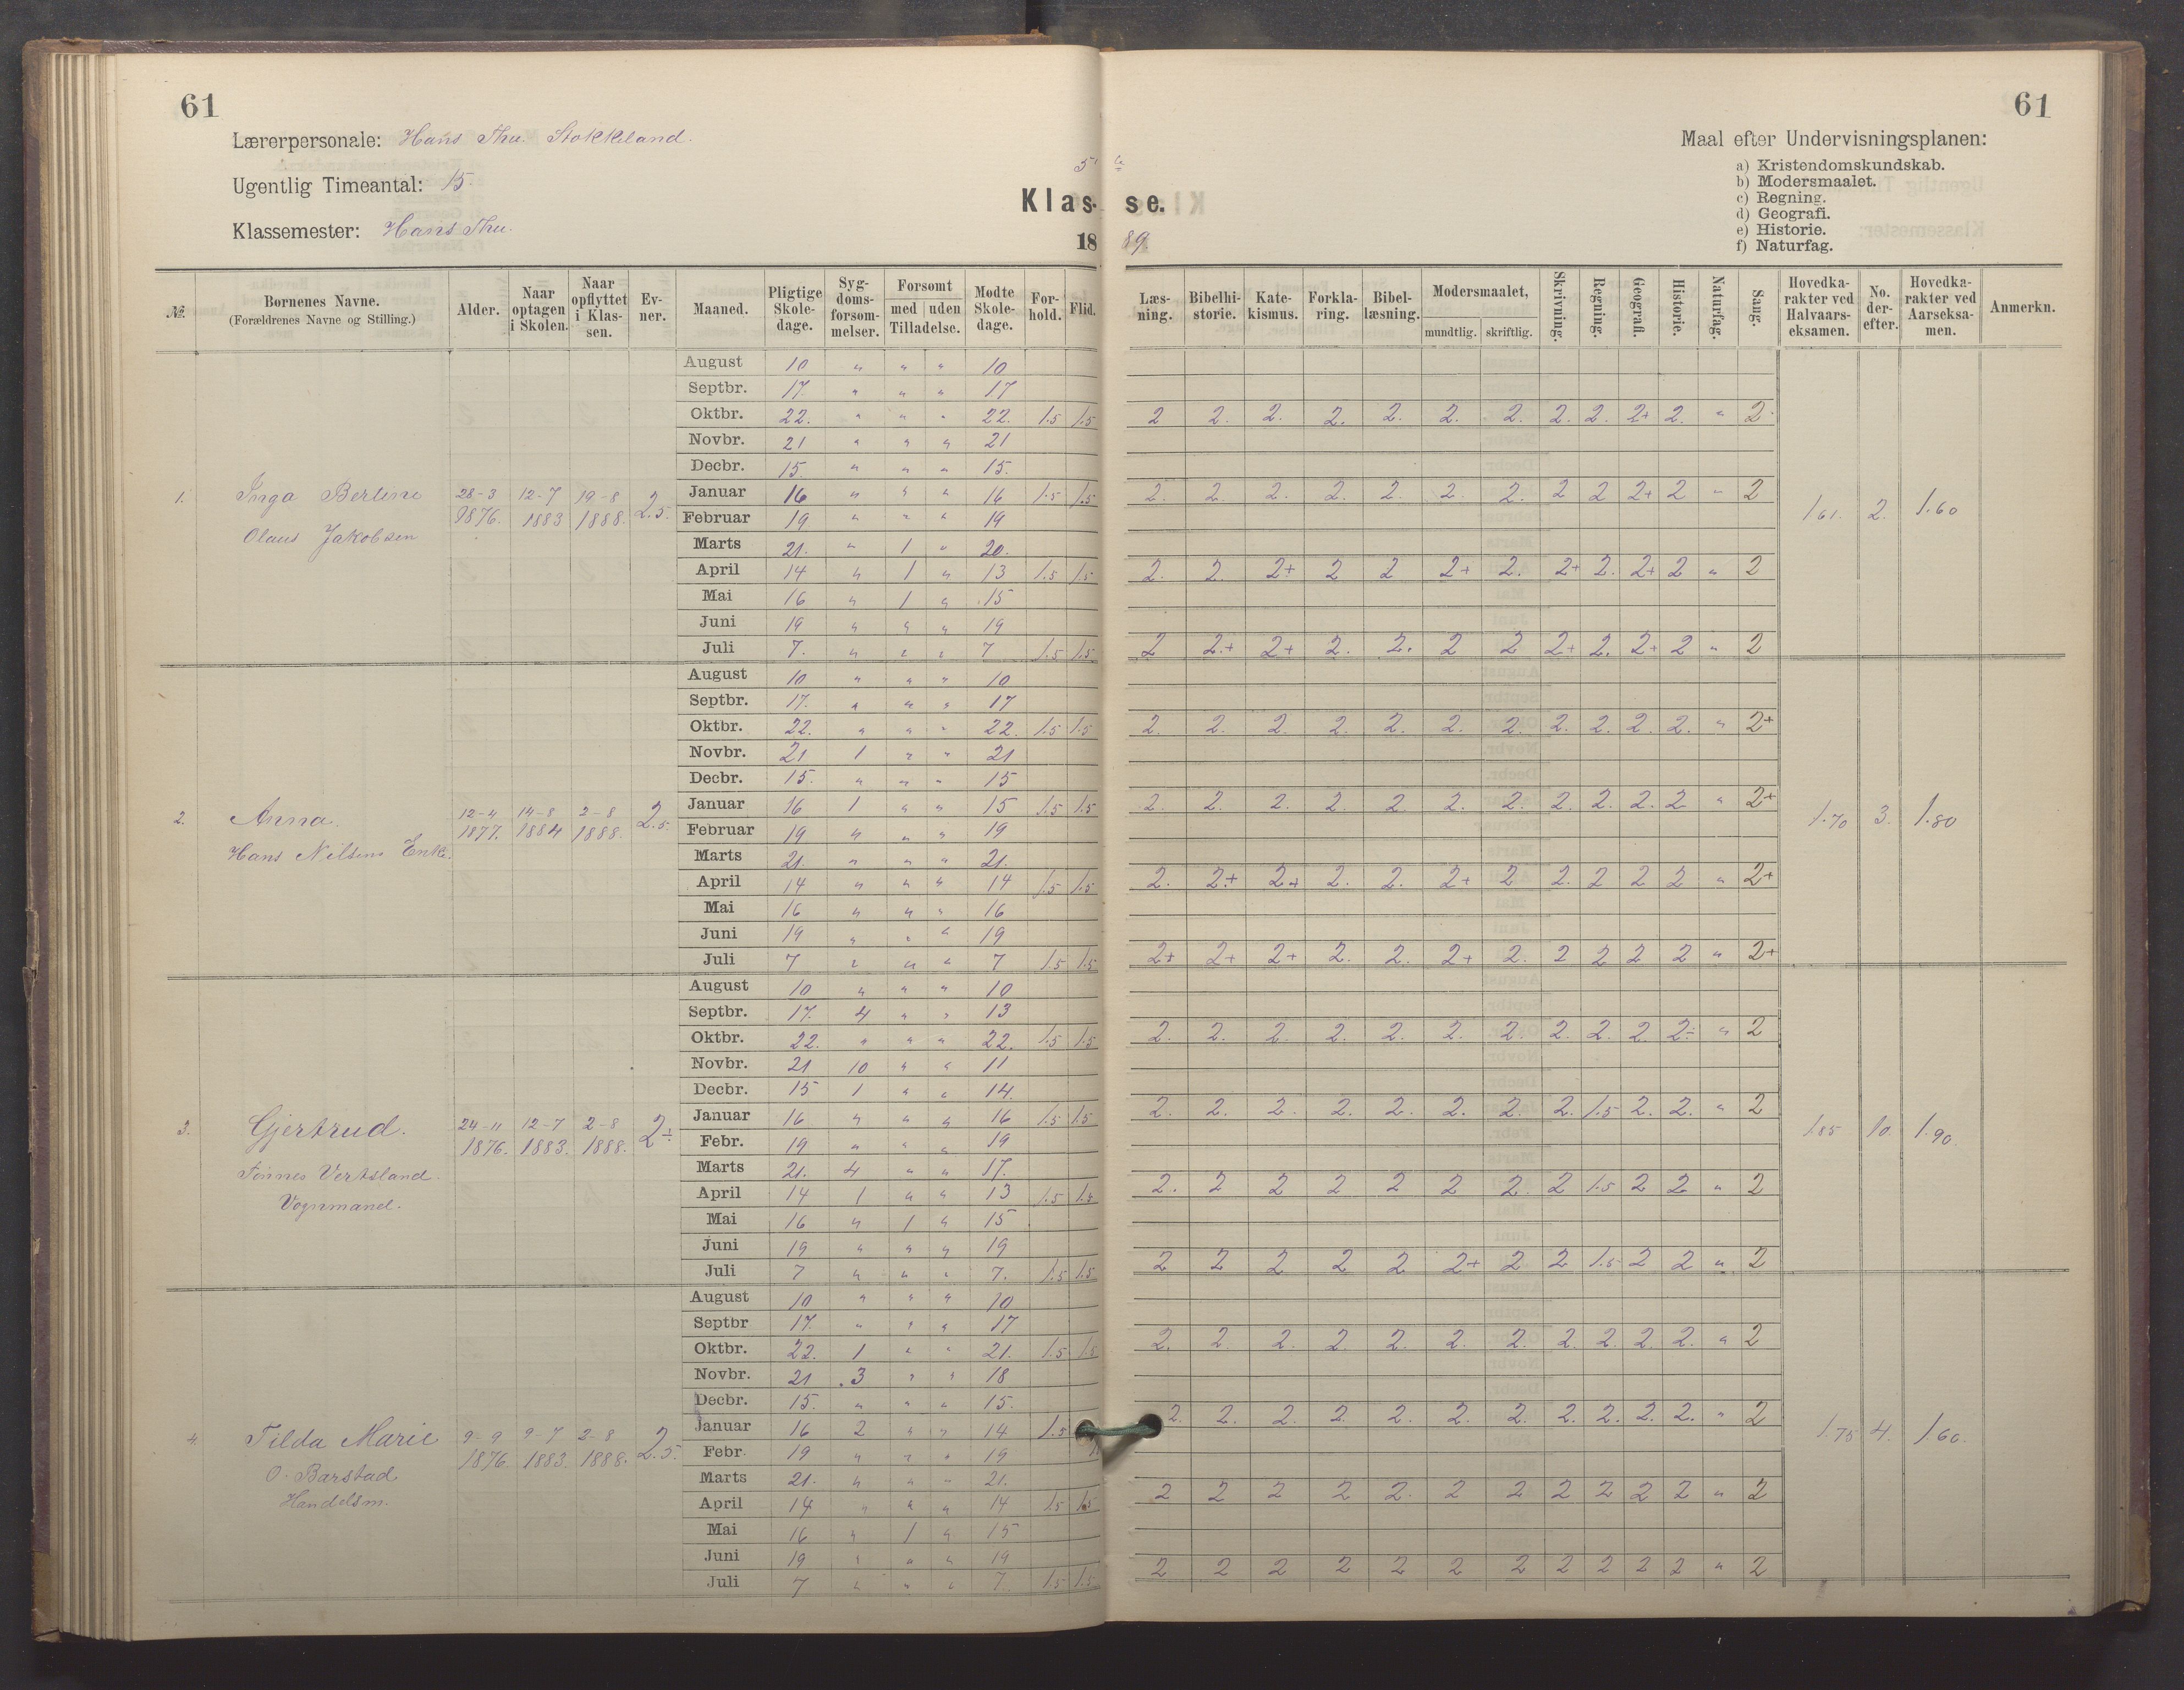 61
61
Lærerpersonale: Hans Thu. Stokkeland.
Ugentlig Timeantal: 15
Klassemester: Hans Thu.
5te
Klas- se.
18 89
Maal efter Undervisningsplanen:
a) Kristendomskundskab.
b) Modersmaalet.
c) Regning.
d) Geografi.
e) Historie.
f) Naturfag.
№. Børnenes Navne. (Forældrenes Navne og Stilling.) Alder. Naar optagen i Skolen. Naar opflyttet i Klassen. Evner. Maaned. Pligtige Skoledage. Sygdomsforsømmelser. Forsømt med uden Tilladelse. Mødte Skoledage. Forhold. Flid. Læsning. Bibelhistorie. Katekismus. Forklaring. Bibellæsning. Modersmaalet, mundtlig. skriftlig. Skrivning. Regning. Geografi. Historie. Naturfag. Sang. Hovedkarakter ved Halvaarseksamen. No. derefter. Hovedkarakter ved Aarseksamen. Anmerkn.
1. Inga Bertine
Olaus Jakobsen
28-3 1876. 12-7 1883 19-8 1888. 2.5.
August 10 " " " 10
Septbr. 17. " " " 17
Oktbr. 22. " " " 22. 1.5 1.5 2 2. 2. 2. 2. 2. 2. 2. 2. 2+ 2. " 2
Novbr. 21 " " " 21
Decbr. 15. " " " 15.
Januar 16 " " " 16 1.5 1.5 2. 2. 2. 2. 2. 2. 2. 2 2 2+ 2 " 2
Februar 19 " " " 19
Marts 21. " 1 " 20.
April 14 " 1 " 13 1.5 1.5 2. 2. 2+ 2 2 2+ 2. 2+ 2. 2+ 2 " 2
Mai 16 " 1 " 15
Juni 19 " " " 19
Juli 7. " " " 7 1.5 1.5 2 2.+ 2+ 2. 2. 2 2 2+ 2. 2+ 2 " 2
1.61. 2. 1.60
2. Anna.
Hans Nilsens Enke.
12-4 1877. 14-8 1884 2-8 1888. 2.5.
August 10 " " " 10
Septbr. 17. " " " 17
Oktbr. 22. " " " 22. 1.5 1.5 2. 2. 2. 2. 2. 2. 2. 2. 2. 2. 2. " 2+
Novbr. 21 1 " " 21
Decbr. 15. " " " 15
Januar 16 1 " " 15 1.5 1.5 2. 2. 2. 2. 2 2. 2. 2. 2. 2. 2 " 2+
Februar 19 " " " 19
Marts 21. " " " 21.
April 14 " " " 14 1.5 1.5 2. 2.+ 2+ 2. 2. 2+ 2 2. 2 2 2 " 2+
Mai 16 " " " 16
Juni 19 " " " 19
Juli 7 " " " 7 1.5 1.5 2+ 2+ 2+ 2. 2. 2+ 2. 2 2 2 2 " 2+
1.70 3. 1.80
3. Gjertrud.
Tønnes Vertsland.
Vognmand.
24-11 1876. 12-7 1883. 2-8 1888. 2÷
August 10 " " " 10
Septbr. 17. 4 " " 13
Oktbr. 22. " " " 22. 1.5 1.5 2. 2. 2. 2. 2. 2. 2. 2. 2. 2. 2÷ " 2
Novbr. 21 10 " " 11
Decbr. 15 1 " " 14.
Januar 16 " " " 16 1.5 1.5 2. 2. 2. 2. 2. 2. 2. 2. 1.5 2. 2. " 2
Febr. 19 " " " 19
Marts 21. 4 " " 17.
April 14 1 " " 13 1.5 1.5 2. 2 2 2 2 2 2. 2 1.5 2 2 " 2
Mai 16 " 1 " 15
Juni 19 " " " 19
Juli 7 " " " 7. 1.5 1.5 2 2 2 2 2 2+ 2 2 1.5 2 2 " 2
1.85 10. 1.90.
4. Tilda Marie
O. Barstad
Handelsm.
9-9 1876. 9-7 1883. 2-8 1888. 2.5.
August 10 " " " 10
Septbr 17. " " " 17
Oktbr. 22. 1 " " 21. 1.5 1.5 2. 2. 2. 2. 2. 2. 2. 2. 2. 2. 2. " 2
Novbr. 21 3 " " 18
Decbr. 15. " " " 15.
Januar 16 2 " " 14 1.5 2. 2. 2. 2. 2. 2. 2. 2. 2. 2. 2. " 2
Febr. 19 " " " 19
Marts 21. " " " 21.
April 14 " " " 14 1.5 1.5 2 2 2 2 2. 2 2 2 2 2 2 " 2
Mai 16 " 1 " 15
Juni 19 " " " 19
Juli 7 " " " 7. 1.5 1.5 2 2 2 2 2 2 2 2 2 2 2 " 2
1.75 4. 1.60.